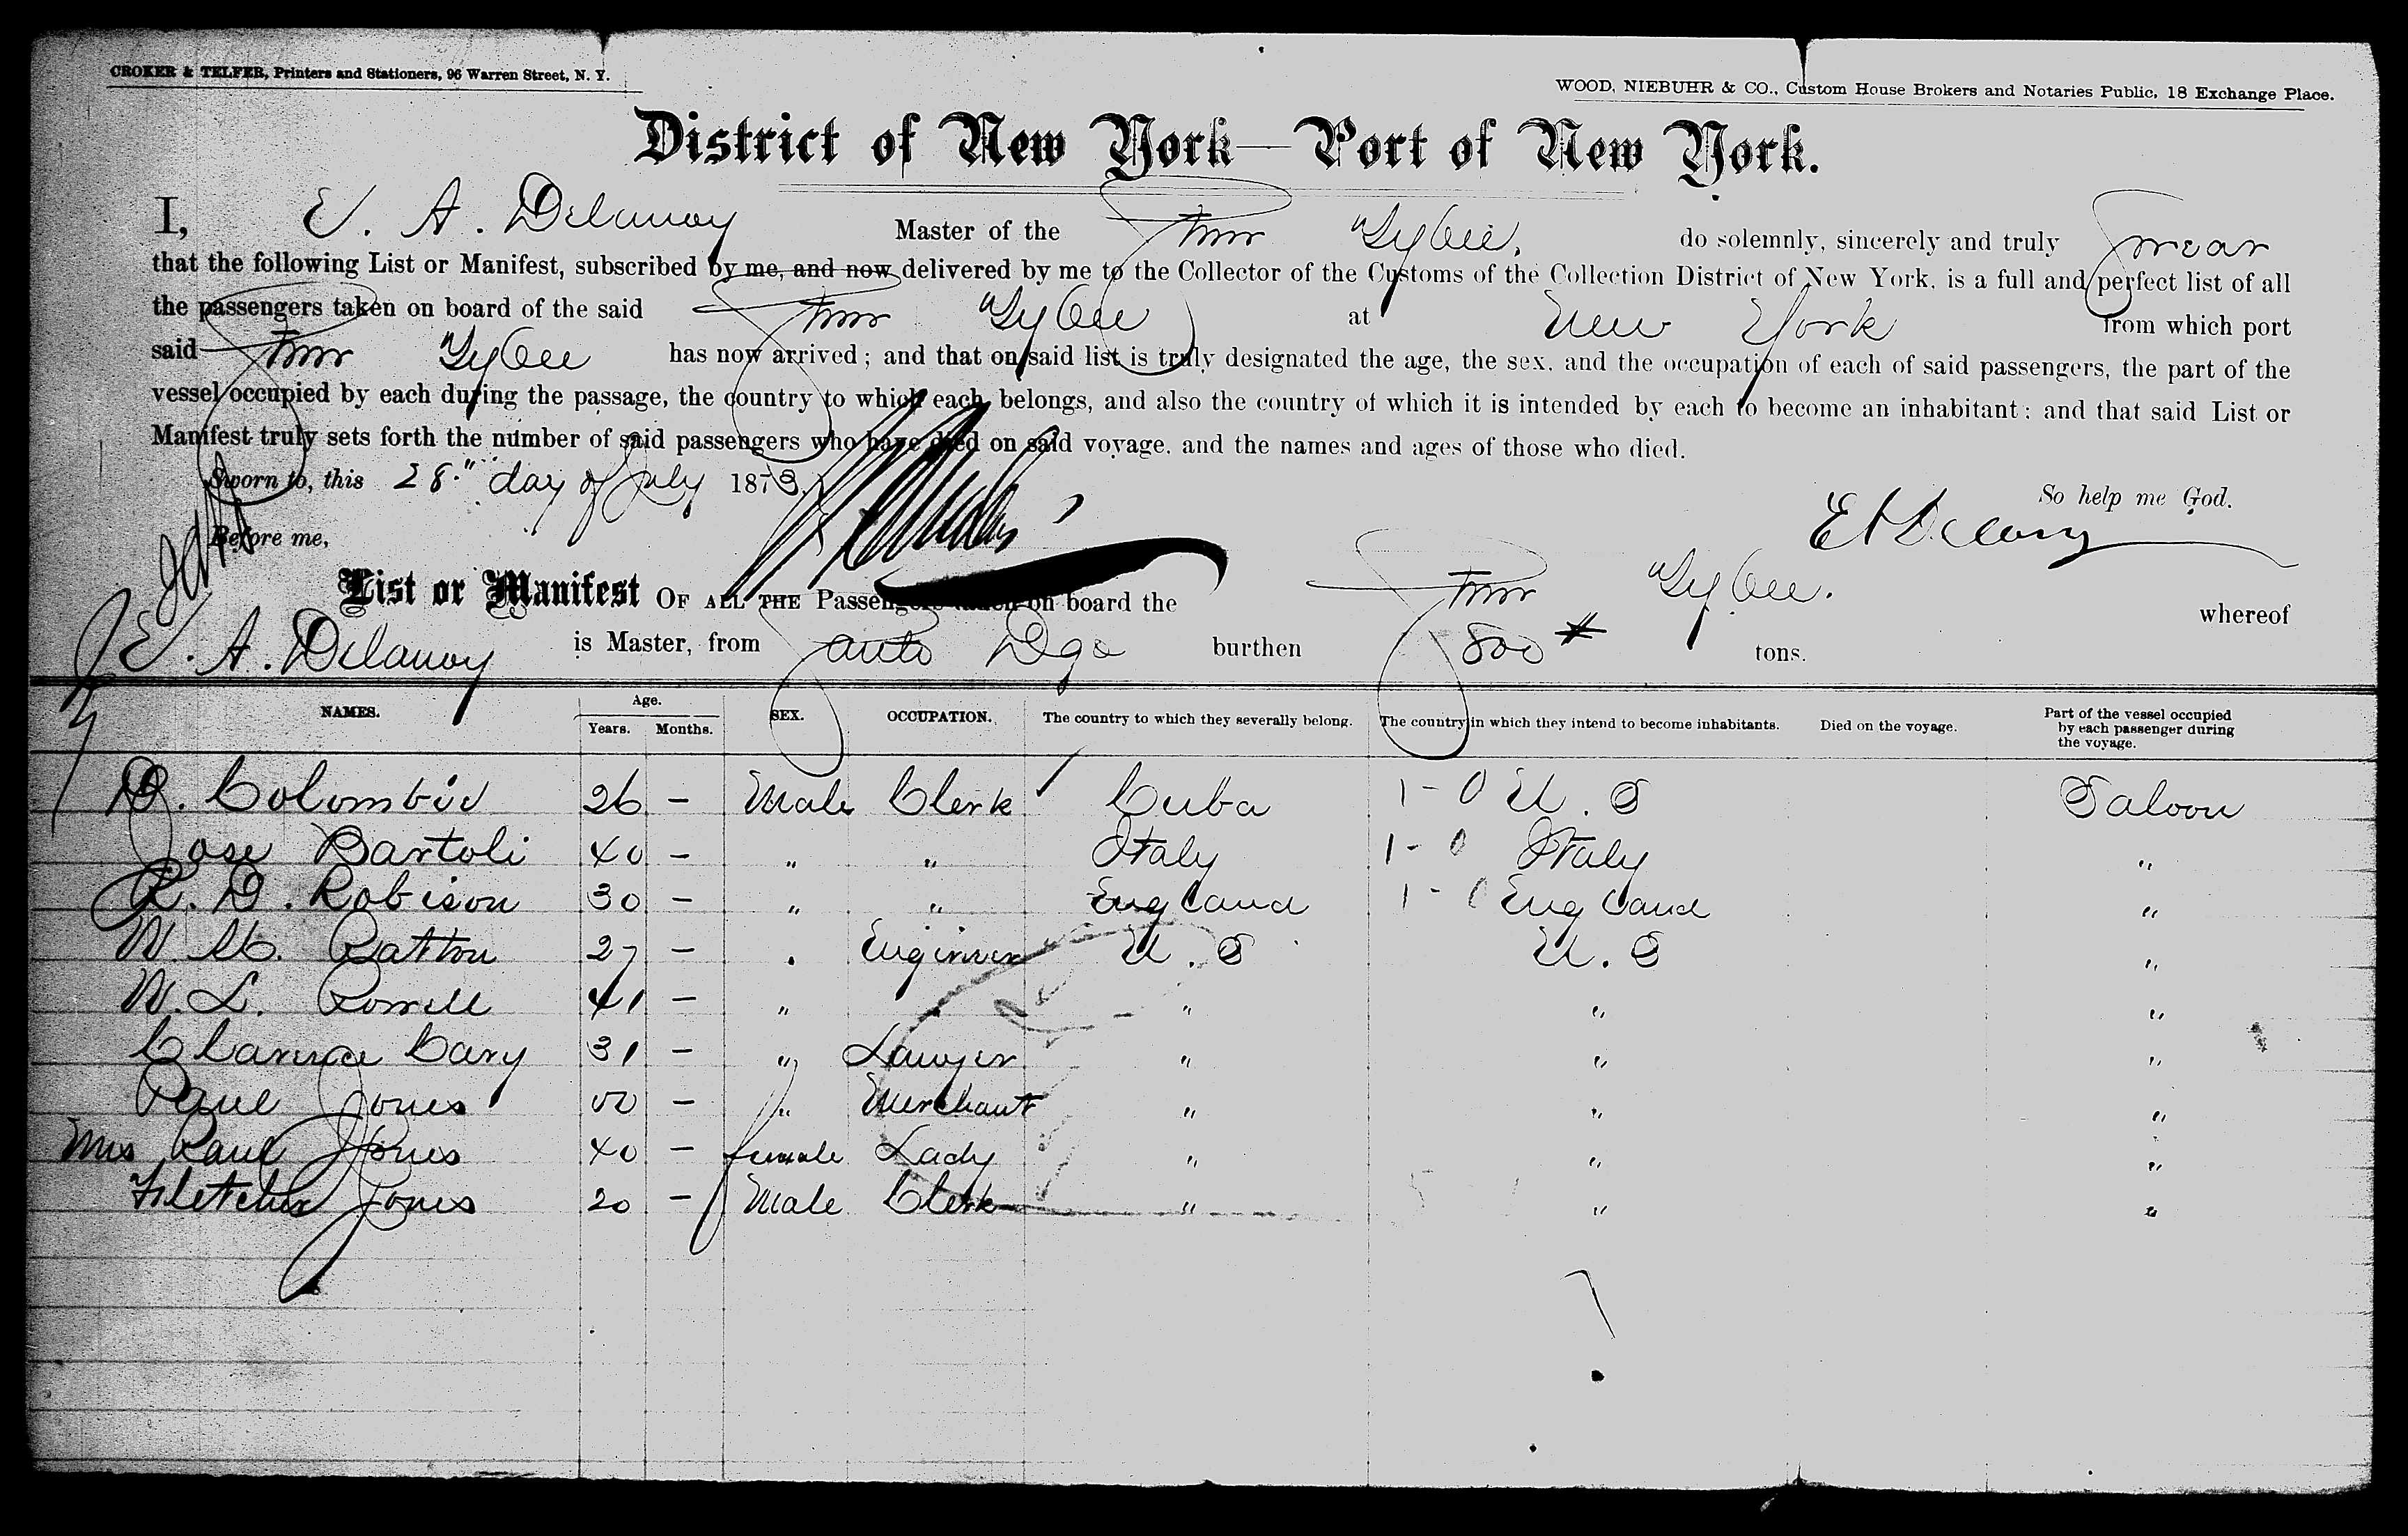 CROKER & TELFER, Printers and Stationers, 96 Warren Street, N. Y.
WOOD, NIEBUHR & CO., Custom House Brokers and Notaries Public, 18 Exchange Place.
District of New York—Port of New York.
I, E. A. Delanoy Master of the Stmr "Tybee", do solemnly, sincerely and truly Swear
that the following List or Manifest, subscribed by me, and now delivered by me to the Collector of the Customs of the Collection District of New York, is a full and perfect list of all
the passengers taken on board of the said Stmr "Tybee" at New York from which port
said Stmr "Tybee has now arrived; and that on said list is truly designated the age, the sex, and the occupation of each of said passengers, the part of the
vessel occupied by each during the passage, the country to which each belongs, and also the country of which it is intended by each to become an inhabitant; and that said List or
Manifest truly sets forth the number of said passengers who have died on said voyage, and the names and ages of those who died.
Sworn to, this 28" day of July 1873.
So help me God.
Before me,
List or Manifest OF ALL THE Passengers taken on board the Stmr "Tybee. whereof
E. A. Delanoy is Master, from Dgo burthen 800 tons.
NAMES. Age. Years. Months. SEX. OCCUPATION. The country to which they severally belong. The country in which they intend to become inhabitants. Died on the voyage. Part of the vessel occupied by each passenger during the voyage.
26 - Male Clerk Cuba 1-0 U.S Saloon
Jose Bartoli 40 - " " Italy 1-0 Italy "
R. D. Robison 30 - " " England 1-0 England "
Patton 27 - " Engineer U.S U.S "
W. L. 41 - " " " "
Clarence Cary 31 - " Lawyer " " "
Paul Jones - " Merchant " " "
Mrs Paul Jones 40 - female Lady " " "
Fletcher Jones 20 - Male Clerk " " "